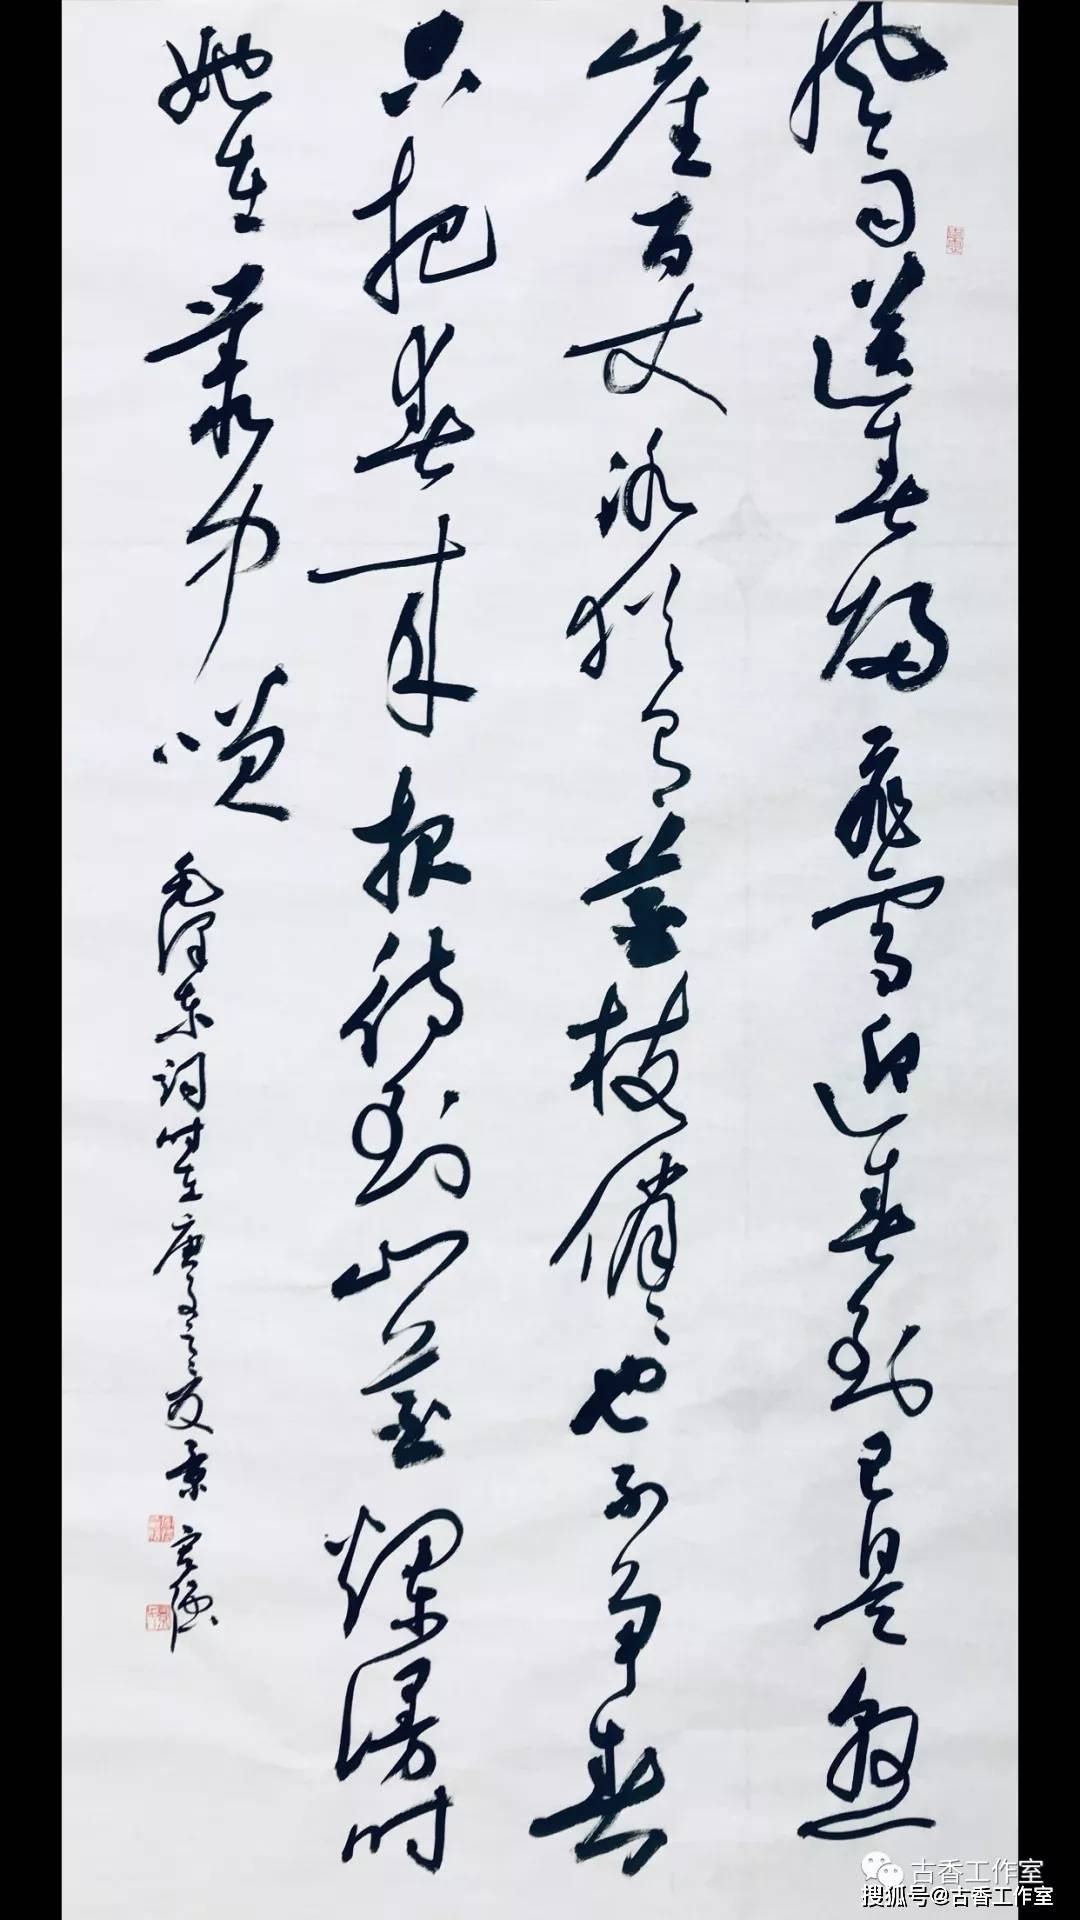 风雨送春歸飛雪迎春到已是懸
崖百丈冰猶有花枝俏々也不争春
只把春来报待到山花爛漫时
她在叢中笑
毛澤东词时在庚子之夏景
古香工作室
搜狐号@古香工作室